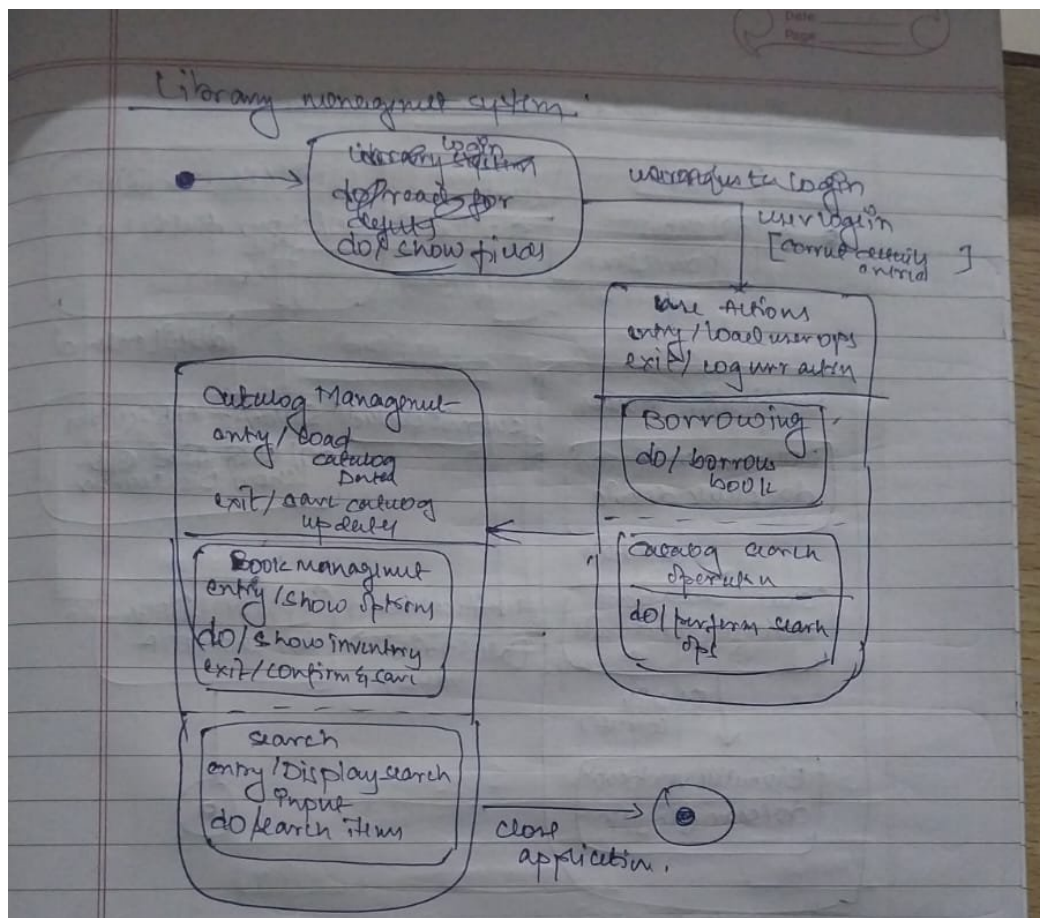 Date
Page
Library managmet system.
Login
do/ show fields
login
user login
[correct details
User Actions
entry/load user ops
exit/ log usr actin
Borrowing
do/ borrow
book
Catalog search
operatin
do/perform search
ops
Catalog Managemet
entry/ load
catalog
exit/ save catalog
updates
Book managemet
entry/show options
do/show inventry
exit/confirm & save
search
entry/Display search
input
do/search items
close
application.